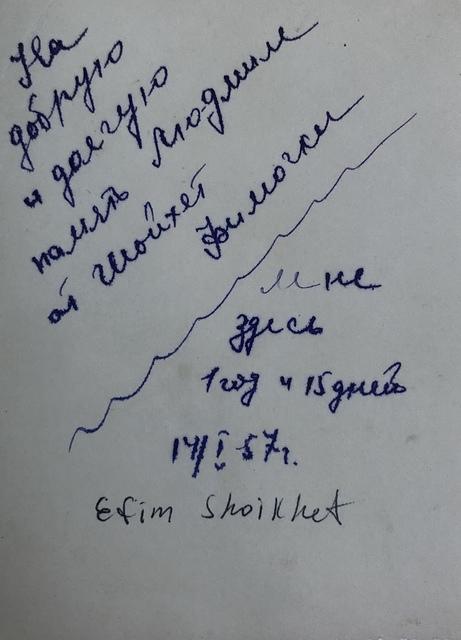 На
добрую
и долгую
память Людмиле
от Шойхет
Фимочки
Мне
здесь
1 год и 15 дней
14/I 57г.
Efim Shoikhet